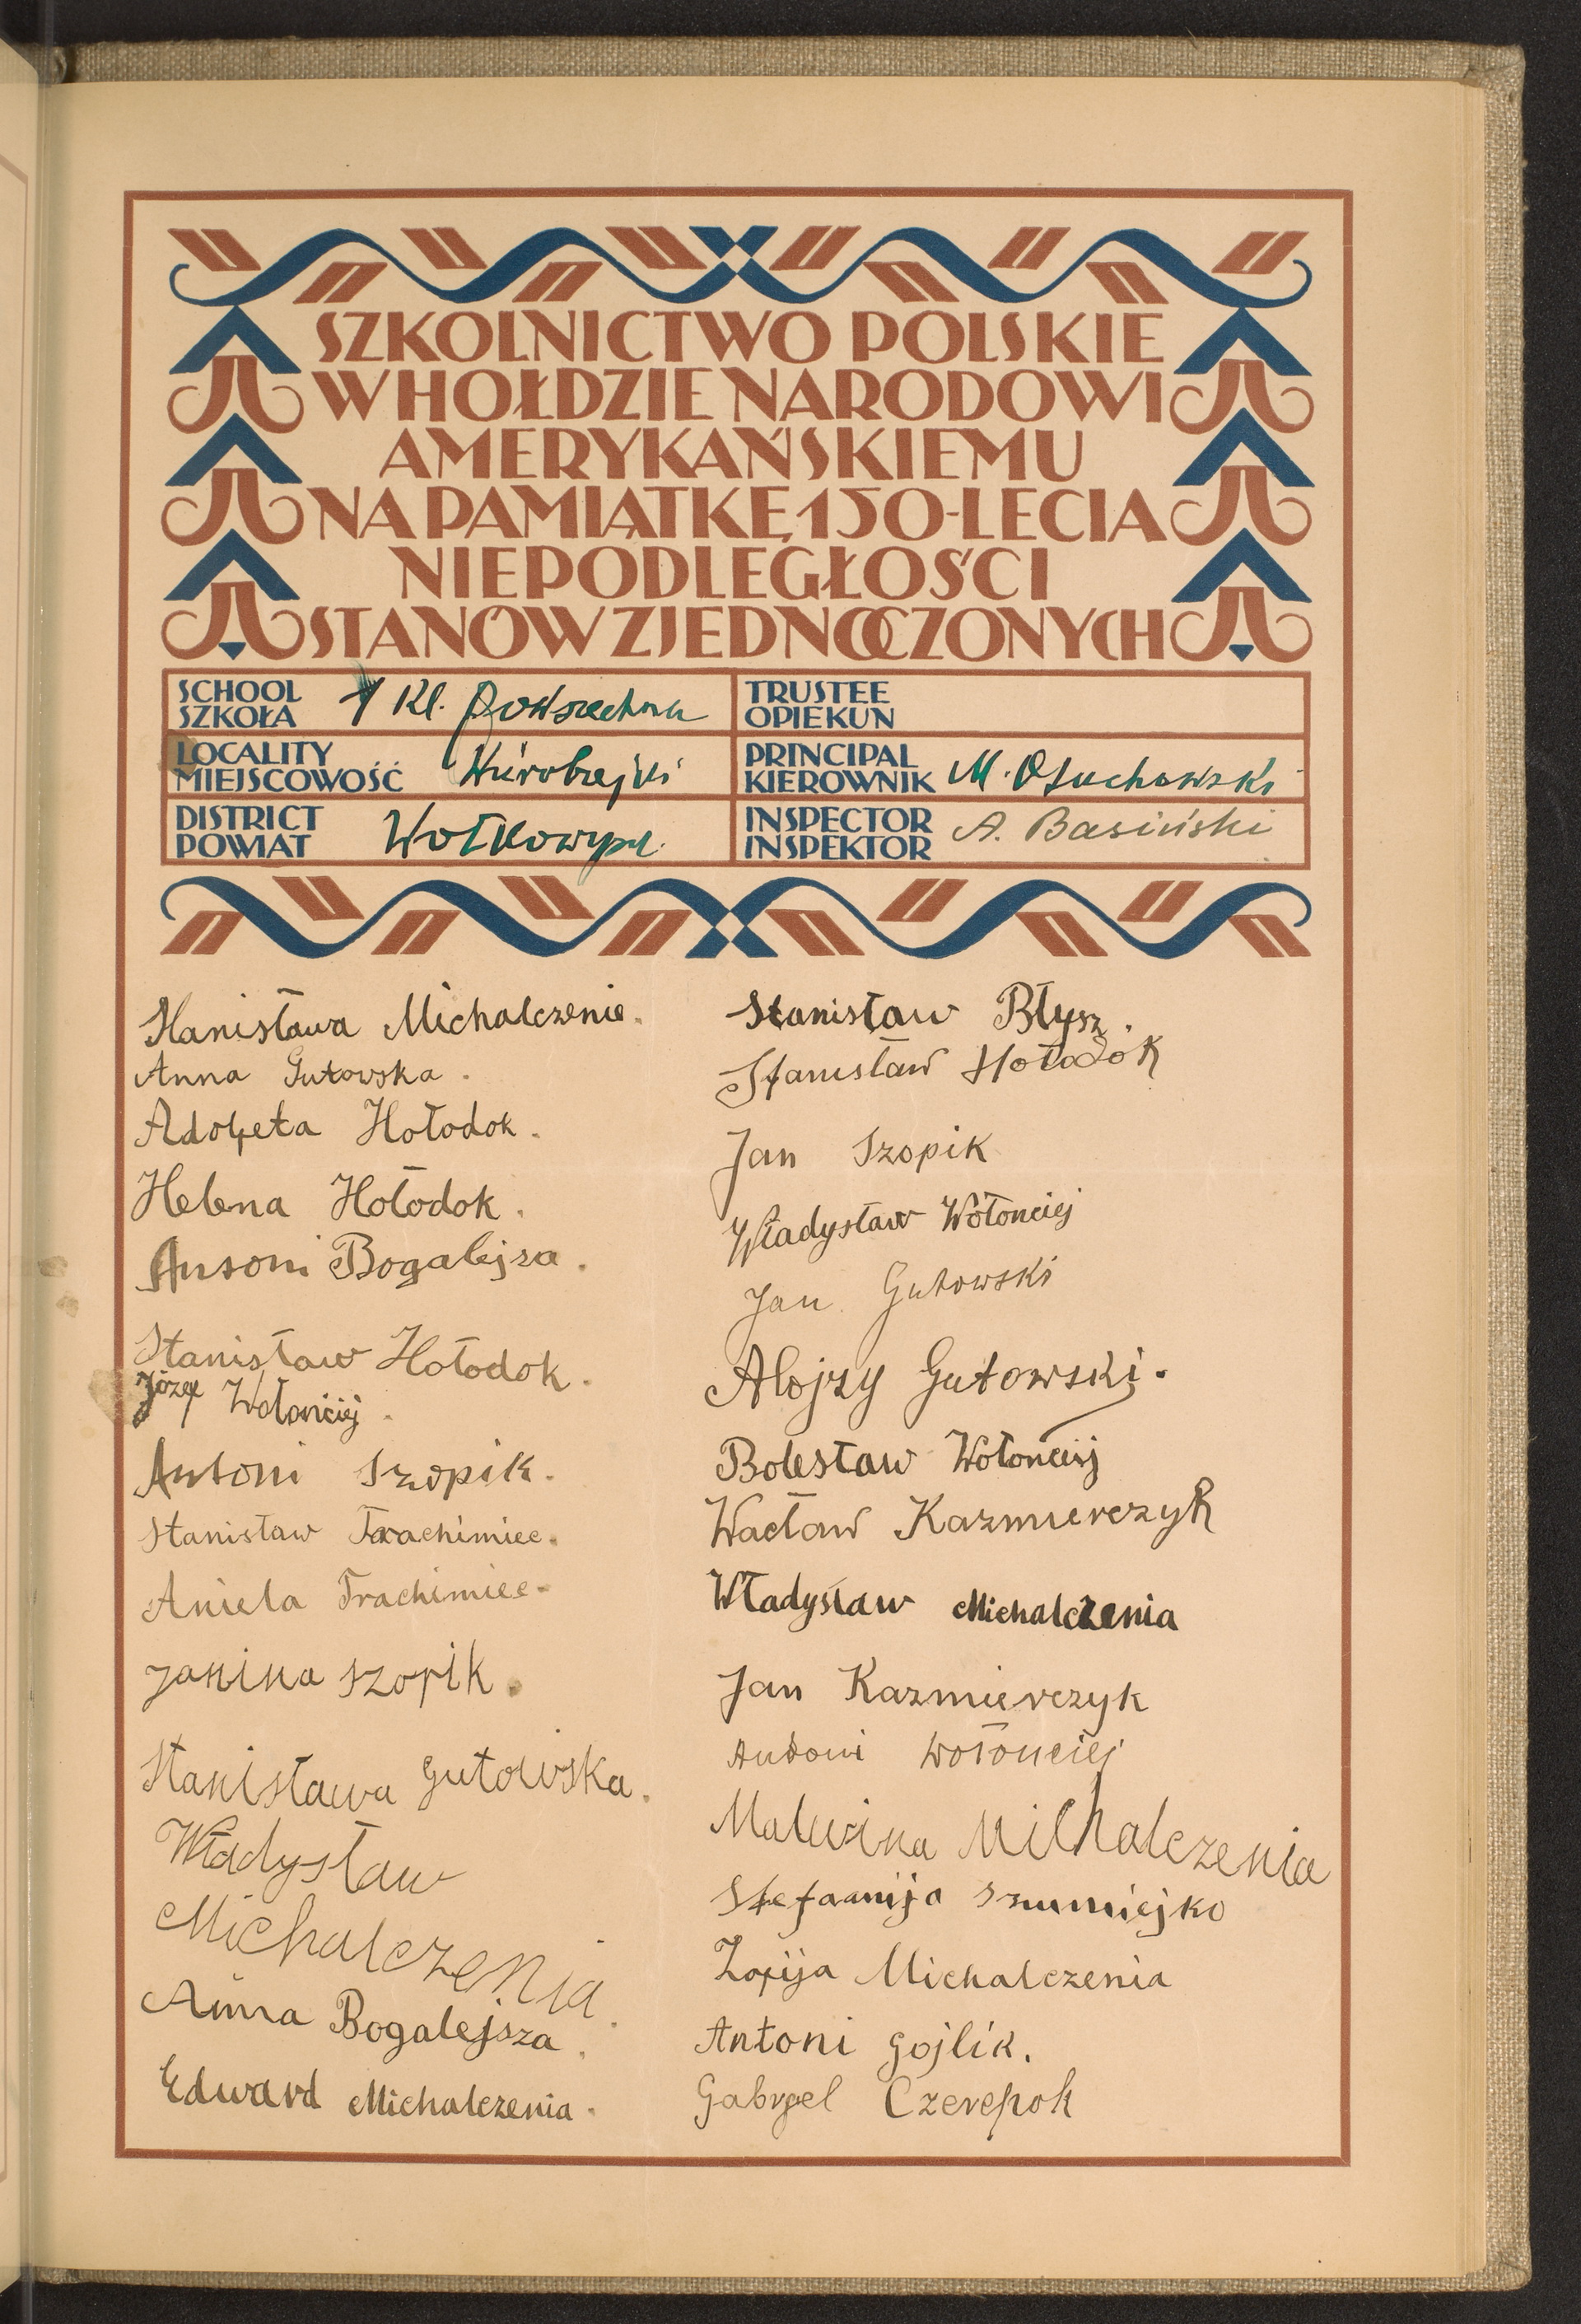 SZKOLNICTWO POLSKIE
W HOŁDZIE NARODOWI
AMERYKAŃSKIEMU
NA PAMIĄTKĘ 150-LECIA
NIEPODLEGŁOŚCI
STANÓW ZJEDNOCZONYCH
SCHOOL
SZKOŁA 1 Kl. Powszechna
TRUSTEE
OPIEKUN
LOCALITY
MIEJSCOWOŚĆ
PRINCIPAL
KIEROWNIK M. Osuchowski
DISTRICT
POWIAT Wołkowysk.
INSPECTOR
INSPEKTOR A. Basiński
Stanisława Michalczenie.
Anna Gutowska.
Adolfeta Hołodok.
Helena Hołodok.
Antoni Bogalejsza.
Stanisław Hołodok.
Józef Wołonciej.
Antoni Szopik.
Stanisław Trachimiec.
Aniela Trachimiec.
Janina Szopik.
Stanisława Gutowska.
Władysław
Michalczenia.
Anna Bogalejsza.
Edward Michalczenia.
Stanisław Błysz.
Stanisław Hołodok
Jan Szopik
Władysław Wołonciej
Jan Gutowski
Alojzy Gutowski.
Bolesław Wołonciej
Wacław Kazmierczyk
Władysław Michalczenia
Jan Kazmierczyk
Antoni Wołonciej
Malwina Michalczenia
Stefanija Szumiejko
Zofija Michalczenia
Antoni Gojlik.
Gabryel Czerepok